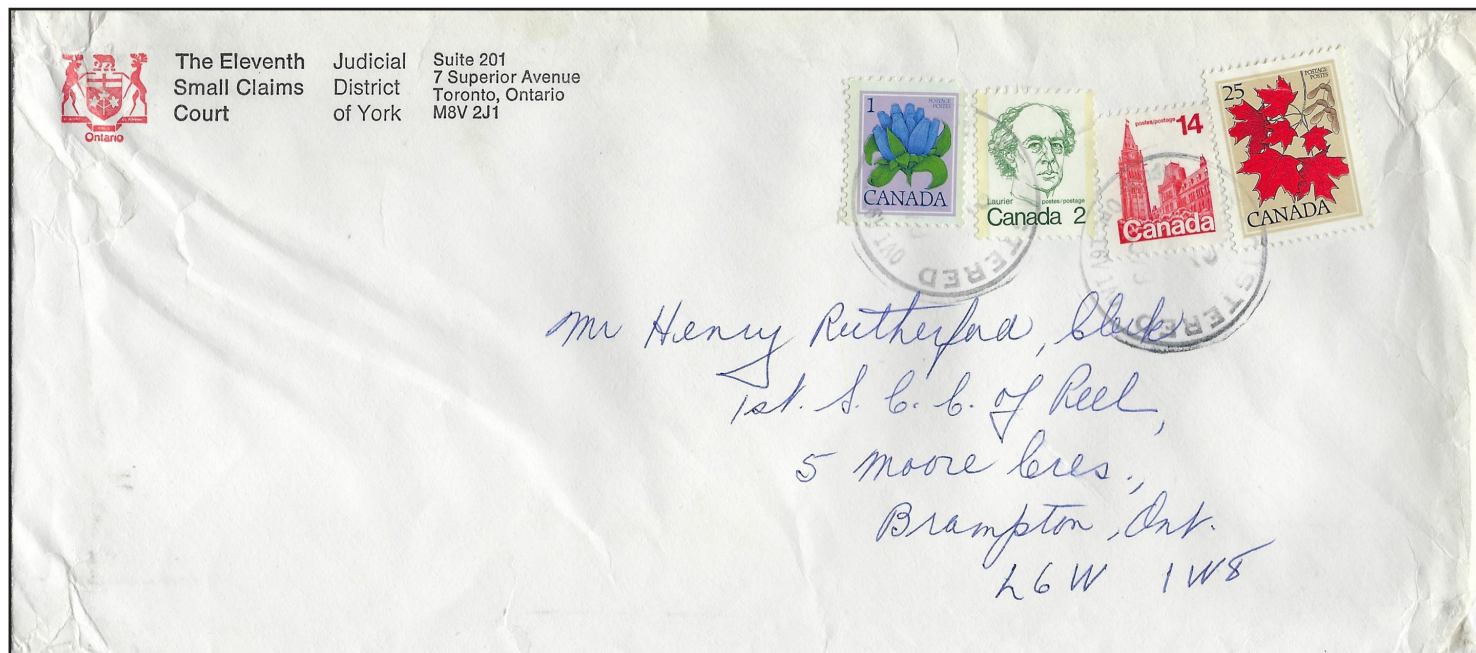 The Eleventh
Small Claims
Court
Judicial
District
of York
Suite 201
7 Superior Avenue
Toronto, Ontario
M8V 2J1
Ontario
1
POSTAGE
POSTES
CANADA
Laurier
postes/postage
Canada 2
postes/postage 14
Canada
25
POSTAGE
POSTES
CANADA
STERED
ISTERED
Mr Henry Rutherford, Clerk
1st. S. C. C. of Peel,
5 Moore Cres.,
Brampton, Ont.
L6W 1W8